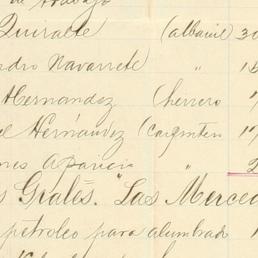 de trabajo
Quiralte (albañil 30
dro Navarrete " 15
Hernandez (herrero 1
l Hernández (Carpintero 17
nes Aparicio " 2
s Grales. "Las Merced
petroleo para alumbrado 1